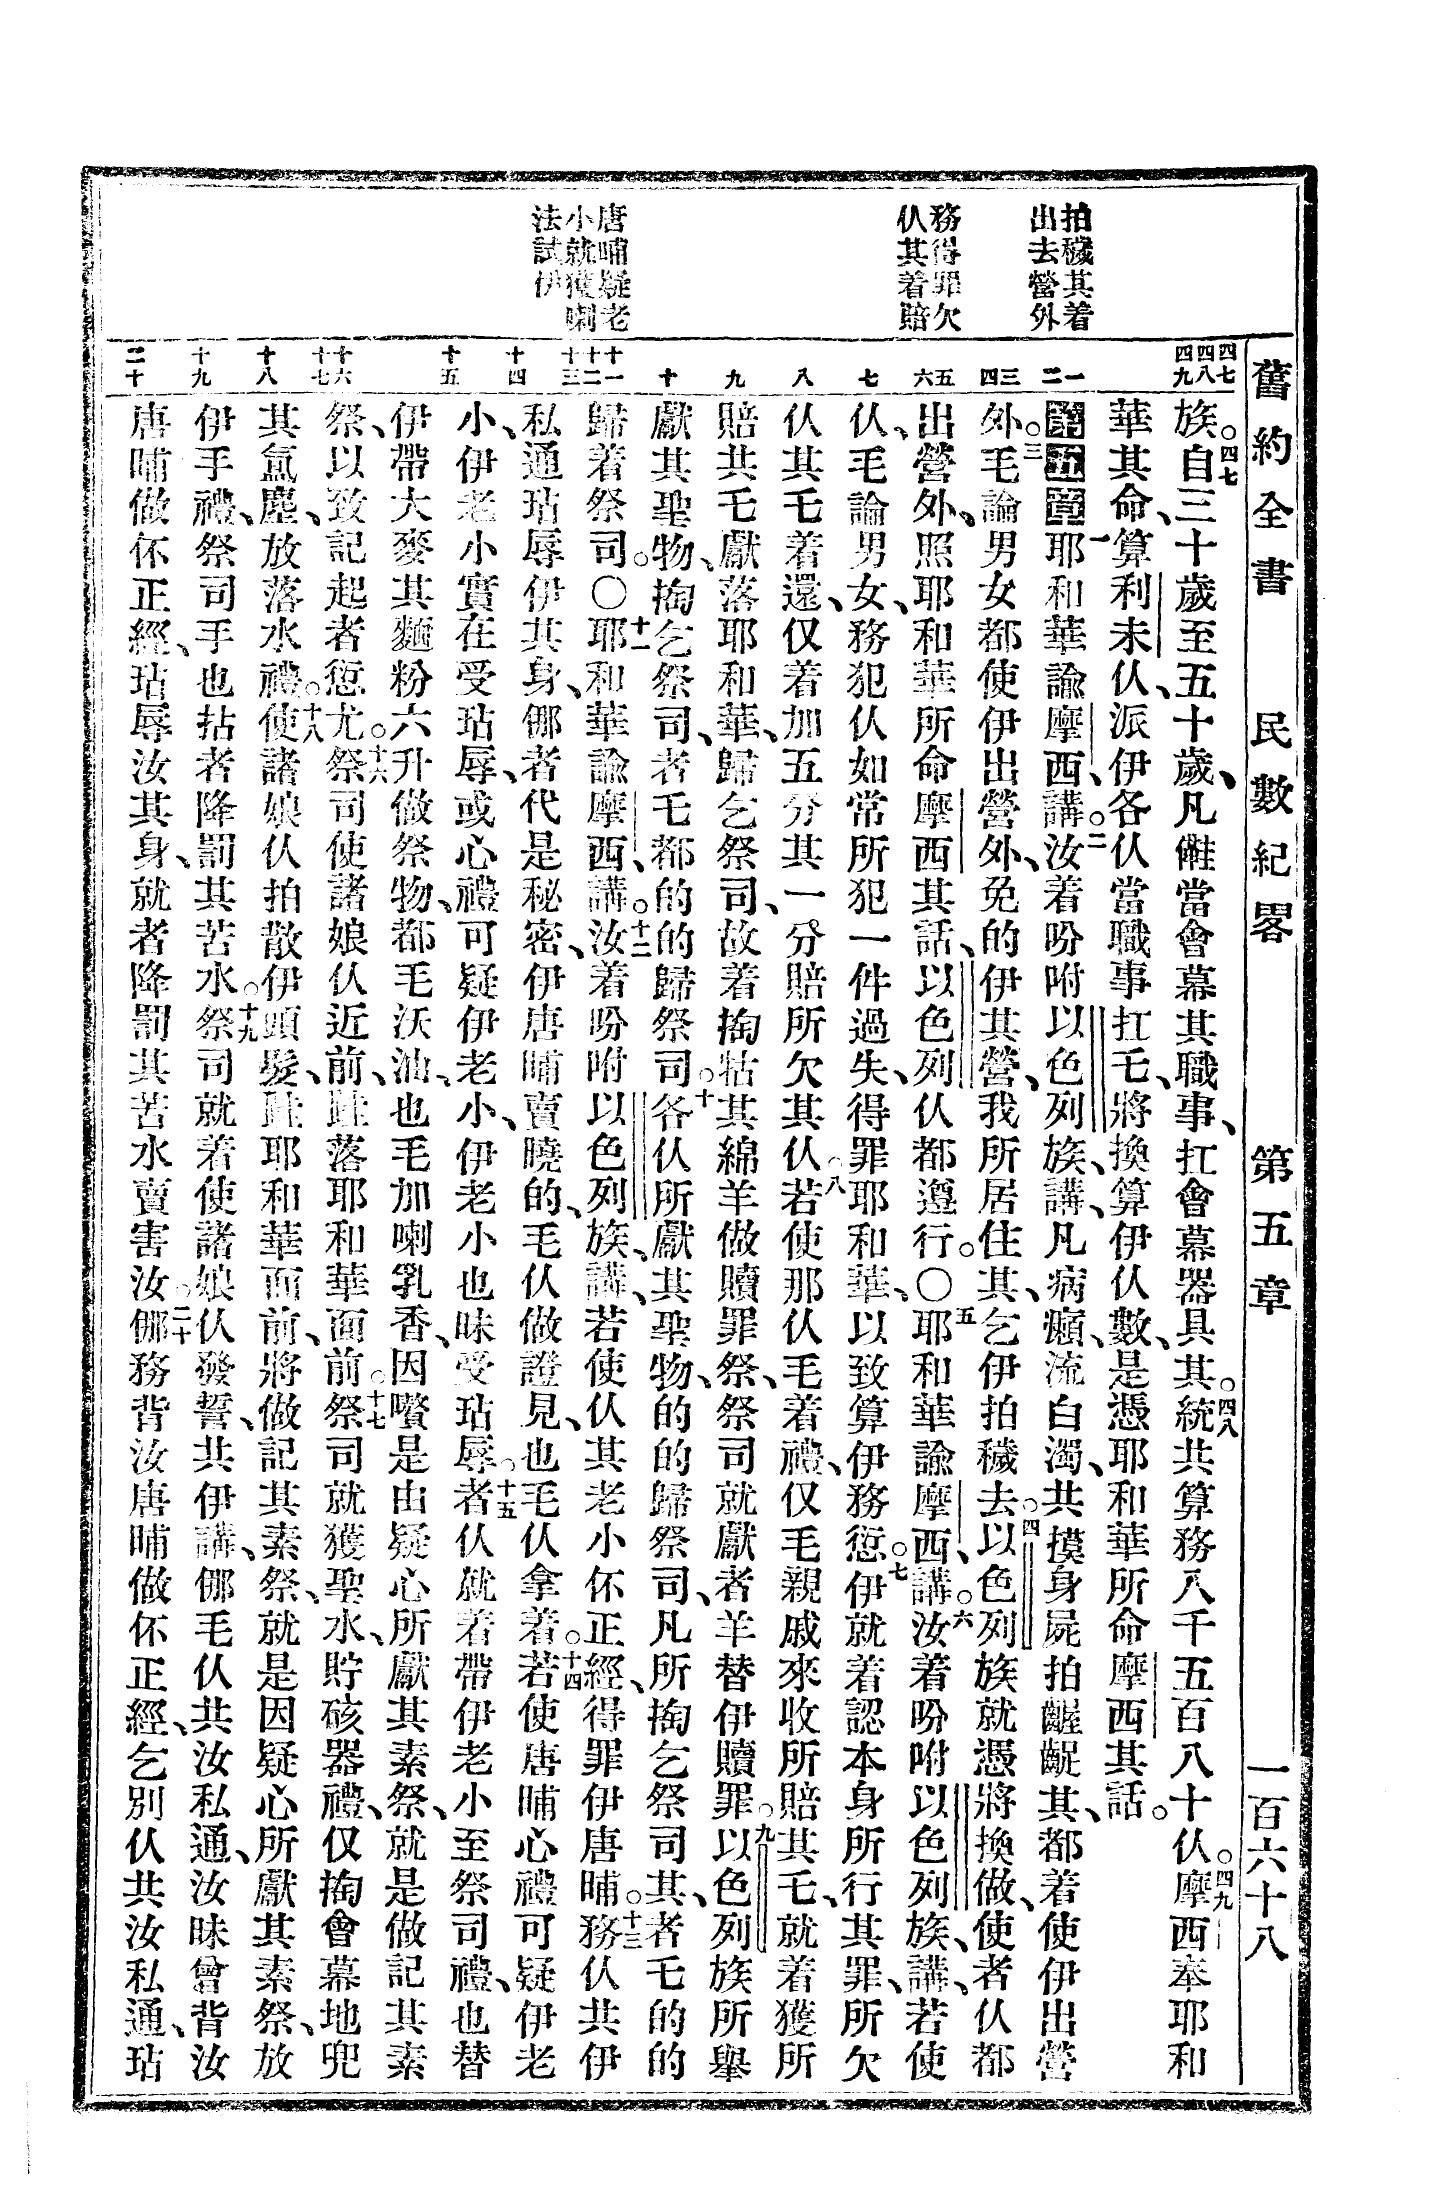 舊約全書　民數紀畧　第五章　一百六十八
拍穢其着
出去營外
務得罪欠
仈其着賠
唐晡疑老
小就獲喇
法試伊
四七
四八
四九
一
二
三
四
五
六
七
八
九
十
十一
十二
十三
十四
十五
十六
十七
十八
十九
二十
族。四七自三十歲至五十歲、凡儺當會幕其職事、扛會幕器具其。四八統共算務八千五百八十仈。四九摩西奉耶和
華其命、算利未仈、派伊各仈當職事扛乇、將換算伊仈數、是憑耶和華所命摩西其話。
第五章一耶和華諭摩西、講。二汝着吩咐以色列族、講、凡病癩、流白濁、共摸身屍拍齷齪其、都着使伊出營
外。三毛論男女都使伊出營外、免的伊其營、我所居住其、乞伊拍穢去。四以色列族就憑將換做、使者仈都
出營外、照耶和華所命摩西其話、以色列仈都遵行。〇五耶和華諭摩西、講。六汝着吩咐以色列族、講、若使
仈、毛論男女、務犯仈如常所犯一件過失、得罪耶和華、以致算伊務愆。七伊就着認本身所行其罪、所欠
仈其乇着還、仅着加五分其一分賠所欠其仈。八若使那仈毛着禮、仅毛親戚來收所賠其乇、就着獲所
賠其乇獻落耶和華、歸乞祭司、故着掏牯其綿羊做贖罪祭、祭司就獻者羊替伊贖罪。九以色列族所舉
獻其聖物、掏乞祭司、者乇都的的歸祭司。十各仈所獻其聖物、的的歸祭司、凡所掏乞祭司其、者乇的的
歸着祭司。〇十一耶和華諭摩西、講。十二汝着吩咐以色列族、講、若使仈其老小伓正經、得罪伊唐晡。十三務仈共伊
私通玷辱伊其身、倻者代是秘密、伊唐晡賣曉的、毛仈做證見、也毛仈拿着。十四若使唐晡心禮可疑伊老
小、伊老小實在受玷辱、或心禮可疑伊老小、伊老小也昧受玷辱。十五者仈就着帶伊老小至祭司禮、也替
伊帶大麥其麵粉六升做祭物、都毛沃油、也毛加喇乳香、因嚽是由疑心所獻其素祭、就是做記其素
祭、以致記起者愆尤。十六祭司使諸娘仈近前、跬落耶和華面前。十七祭司就獲聖水、貯硋器禮、仅掏會幕地兜
其氳塵、放落水禮。十八使諸娘仈拍散伊頭髮、跬耶和華面前、將做記其素祭、就是因疑心所獻其素祭、放
伊手禮、祭司手也拈者降罰其苦水。十九祭司就着使諸娘仈發誓、共伊講、倻毛仈共汝私通、汝昧曾背汝
唐晡做伓正經、玷辱汝其身、就者降罰其苦水賣害汝。二十倻務背汝唐晡做伓正經、乞別仈共汝私通、玷